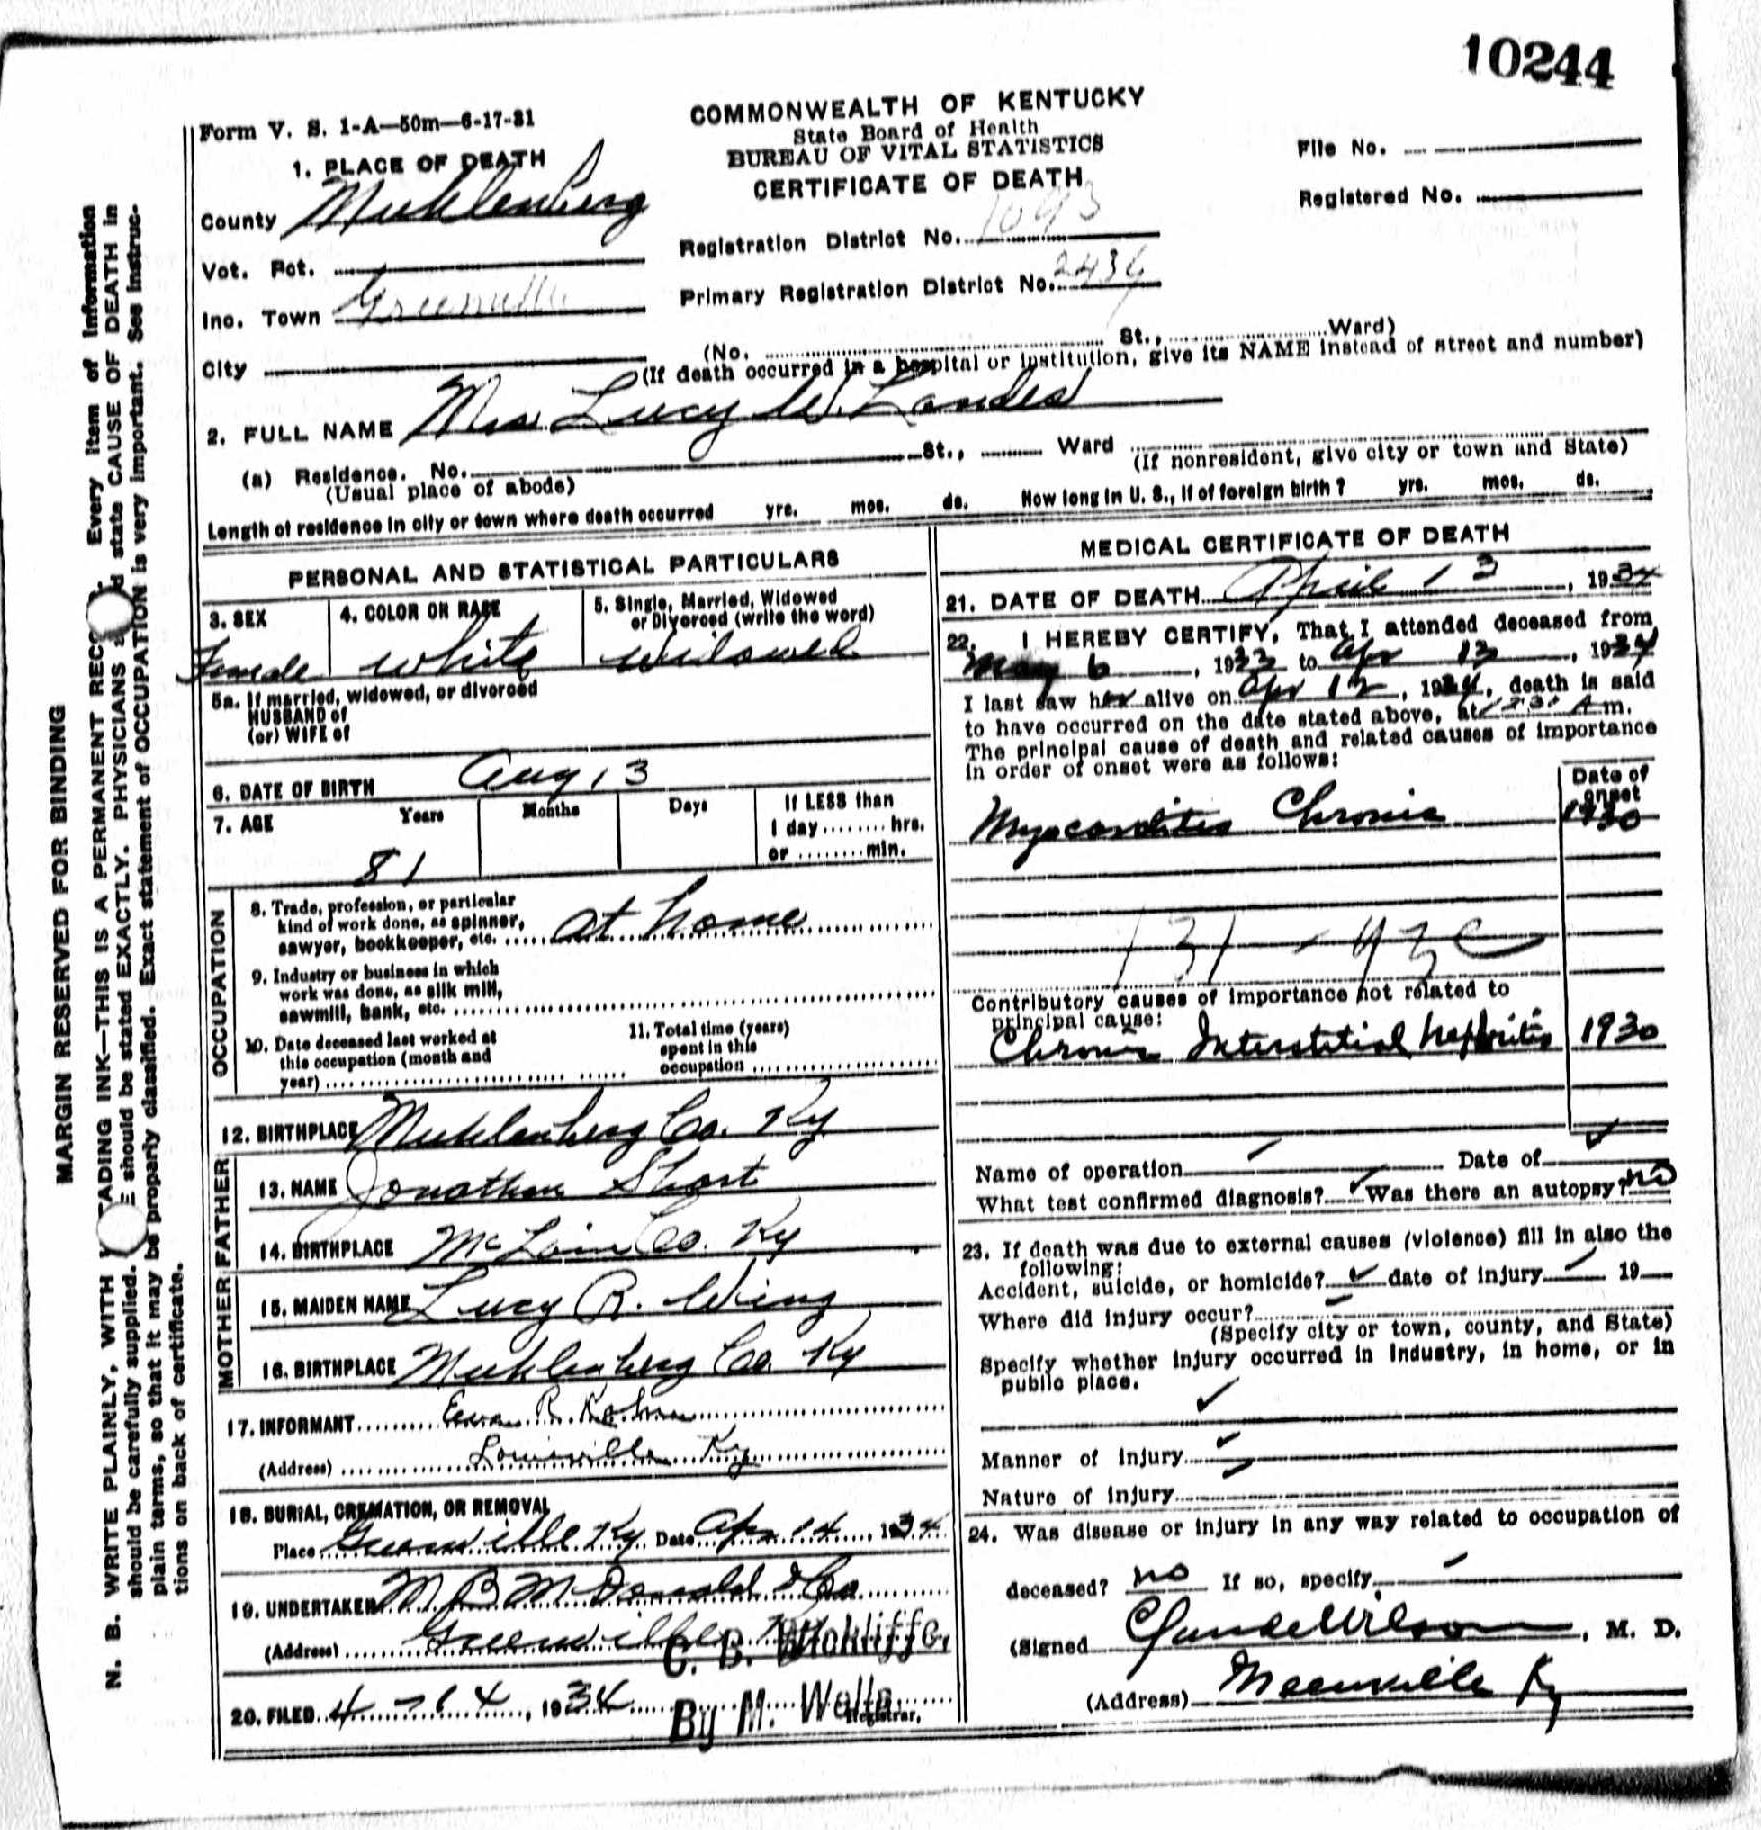 10244
Form V. S. 1-A—50m—6-17-31
COMMONWEALTH OF KENTUCKY
State Board of Health
BUREAU OF VITAL STATISTICS
CERTIFICATE OF DEATH
File No.
Registered No.
1. PLACE OF DEATH
County Muhlenberg
Vot. Pct.
Inc. Town Greenville
City
Registration District No. 1093
Primary Registration District No. 2436
(No. St., Ward)
(If death occurred in a hospital or institution, give its NAME instead of street and number)
2. FULL NAME Mrs Lucy W. Landes
(a) Residence. No. St., Ward
(Usual place of abode)
(If nonresident, give city or town and State)
Length of residence in city or town where death occurred yrs. mos. ds. How long in U. S., if of foreign birth? yrs. mos. ds.
PERSONAL AND STATISTICAL PARTICULARS
3. SEX
Female
4. COLOR OR RACE
White
5. Single, Married, Widowed
or Divorced (write the word)
Widowed
5a. If married, widowed, or divorced
HUSBAND of
(or) WIFE of
6. DATE OF BIRTH Aug 13
7. AGE Years Months Days If LESS than
1 day ........ hrs.
or ........ min.
81
OCCUPATION
8. Trade, profession, or particular
kind of work done, as spinner,
sawyer, bookkeeper, etc. at home
9. Industry or business in which
work was done, as silk mill,
sawmill, bank, etc.
10. Date deceased last worked at
this occupation (month and
year)
11. Total time (years)
spent in this
occupation
12. BIRTHPLACE Muhlenberg Co. Ky
FATHER
13. NAME Jonathan Short
14. BIRTHPLACE McLain Co. Ky
MOTHER
15. MAIDEN NAME Lucy R. Wing
16. BIRTHPLACE Muhlenberg Co. Ky
17. INFORMANT R.
(Address) Louisville Ky
18. BURIAL, CREMATION, OR REMOVAL
Place Greenville Ky Date Apr 14 1934
19. UNDERTAKER M B McDonald & Co
(Address) Greenville
C. B. Wickliffe,
20. FILED 4-14, 1934
By M. Wells
Registrar.
MEDICAL CERTIFICATE OF DEATH
21. DATE OF DEATH April 13, 1934
22. I HEREBY CERTIFY, That I attended deceased from
May 6, 1933 to Apr 13, 1934
I last saw her alive on Apr 12, 1934, death is said
to have occurred on the date stated above, at A m.
The principal cause of death and related causes of importance
in order of onset were as follows:
Date of
onset
Myocarditis Chronic 1930
131 - 93c
Contributory causes of importance not related to
principal cause:
Chronic Interstitial Nephritis 1930
Name of operation Date of
What test confirmed diagnosis? Was there an autopsy? no
23. If death was due to external causes (violence) fill in also the
following:
Accident, suicide, or homicide? date of injury 19
Where did injury occur?
(Specify city or town, county, and State)
Specify whether injury occurred in industry, in home, or in
public place.
Manner of injury
Nature of injury
24. Was disease or injury in any way related to occupation of
deceased? no If so, specify
(Signed Claude Wilson, M. D.
(Address) Greenville Ky
MARGIN RESERVED FOR BINDING
N. B. WRITE PLAINLY, WITH ADING INK—THIS IS A PERMANENT RECO Every item of information
should be carefully supplied. E should be stated EXACTLY. PHYSICIANS state CAUSE OF DEATH in
plain terms, so that it may be properly classified. Exact statement of OCCUPATION is very important. See instruc-
tions on back of certificate.